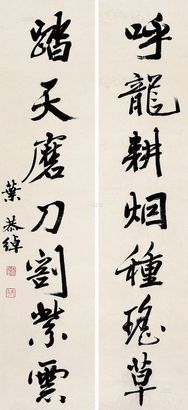 呼龍耕烟種瑤草
踏天磨刀割紫雲
葉恭綽